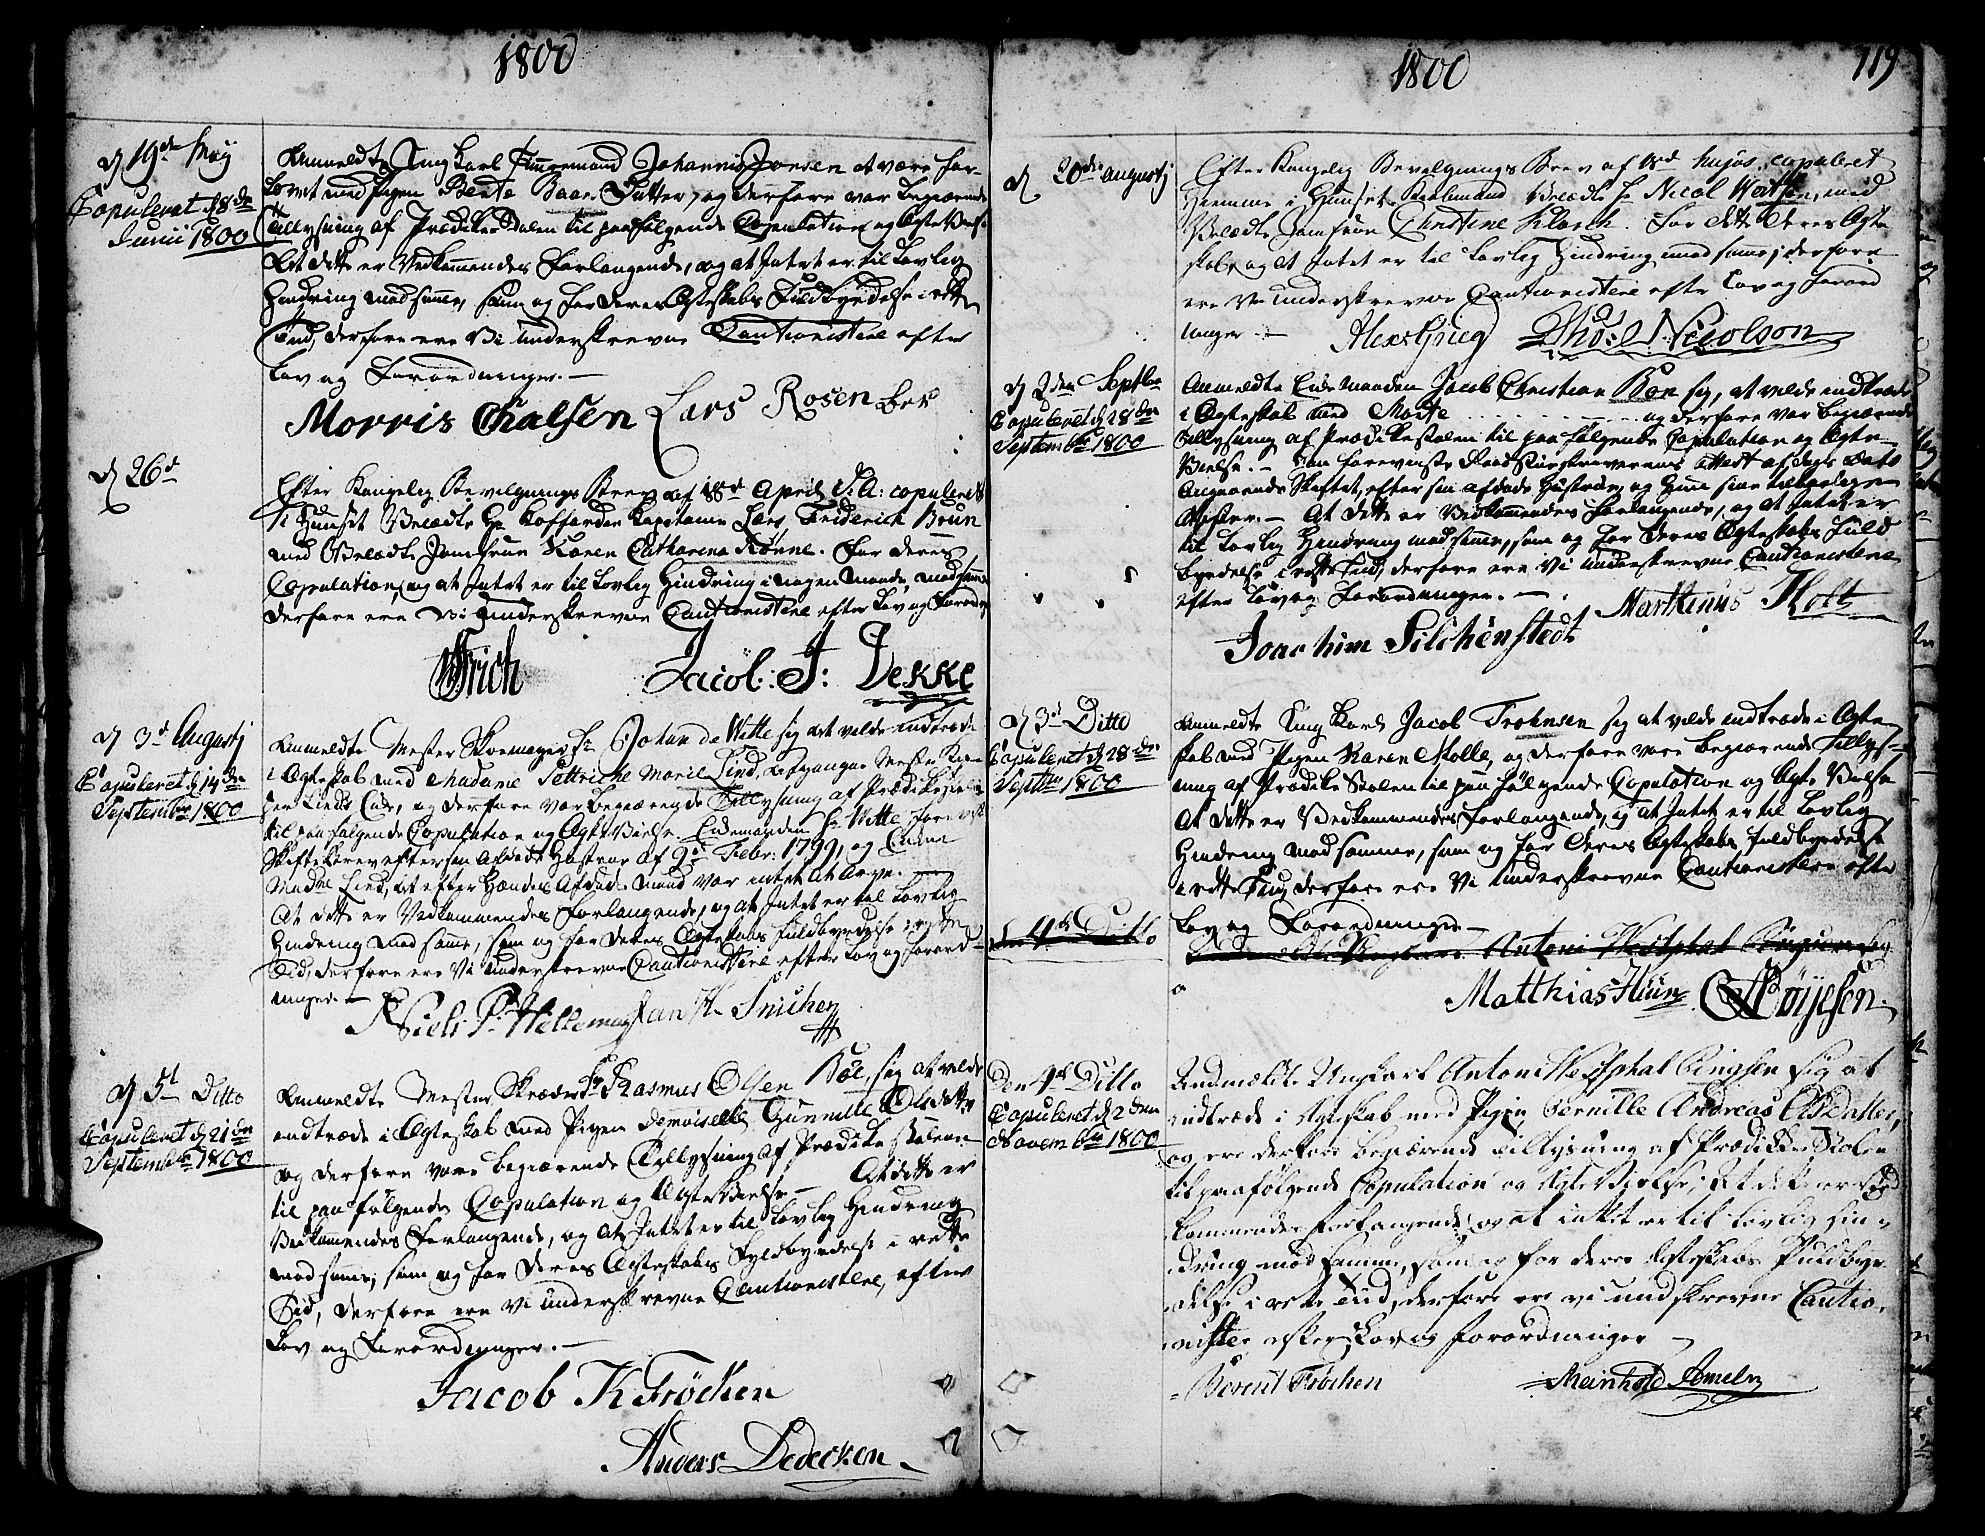 1800
d 19de Maij
Copuleret d 8de
Junii 1800
Anmeldte Ung Karl Tømmermand Johannis Jonsen at være for-
lovet med Pigen Berte Baars Datter, og derfore var begiærende
Tillysning af Prædikestolen til paafølgende Copulation og Ægte Viel-
At dette er Vedkommendes Forlangende, og at Intet er til Lovlig
Hindring mod samme, som og for deres Ægteskabs Fuldbyrdelse i rette
Tiid, derfore ere Vi Underskrevne Cautionistere efter
Lov og Forordninger.—
Morris Chalsen Lars Rosenber
d 26d
Efter Kongelig Bevilgnings Brev af 18d April d: A: copuleret
i Huuset Velædle Hr Koffardie Kapitaine Lars Friderich Bruun
med Velædle Jomfrue Karen Catharina Rønne. For deres
Copulation, og at Intet er til Lovlig Hindring i nogen Maade, mod samme
derfore ere Vi Underskrevne Cautionistere efter Lov og Forord
Frich Jacob: J: Dekke
d 3d Augustj
Copuleret d 14de
September 1800
Anmeldte Mester Skomager Sr Johan de Witte sig at vilde indtræde
i Ægteskab med Madame Marie Lind,
Enke, og derfore var begiærende Tillysning af Prædikestolen
til paafølgende Copulation og Ægte Vielse. Enkemanden Sr Witte foreviiste
Skiftebrev efter sin Afdøde Hustrue af 9d Febr: 1799, og Enken
Madme Lind, at efter Hendes Afdøde Mand var intet at Arve.—
At dette er Vedkommendes Forlangende, og at Intet er til Lovlig
Hindring mod samme, som og for deres Ægteskabs Fuldbyrdelse i rette
Tid, derfore ere Vi Underskrevne Cautionistere efter Lov og Forord-
ninger.—
Niels P. Helleman Jan H. Snichen
d 5t Ditto
Copuleret d 21de
September 1800
Anmeldte Mester Skræder Sr Rasmus Olsen Böe, sig at vilde
indtræde i Ægteskab med Pigen Demoiselle Gunnille Olsdatter
og derfore vare begiærende Tillysning af Prædikestolen
til paafølgende Copulation og Ægte Vielse.— At dette er
Vedkommendes Forlangende, og at Intet er til Lovlig Hindring
mod samme, som og for deres Ægteskabs Fyldbyrdelse i rette
Tid, derfore ere Vi Underskrevne Cautionistere, efter
Lov og Forordninger.—
Jacob K Fröchen
Anders Dedecken
1800
119
d 20de augustj
Efter Kongelig Bevilgnings Brev af hujus, copuleret
Hiemme i Huuset Velædle Hr Nicol med
Velædle Jomfrue Christine Klarch. For dette deres Ægte
skab, og at Intet er til Lovlig Hindring mod samme, derfore
ere Vi Underskrevne Cautionistere efter Lov og Forord
ninger.— Alex: Grieg Tho: Nicolson
d 2den Septbr
Copuleret d 28de
September 1800
Anmeldte Enkemanden Jacob Christian Bøn sig, at vilde indtræde
i Ægteskab med Marte og derfore var begiærende
Tillysning af Prædikestolen til paafølgende Copulation og Ægte
Vielse.— Han foreviiste Raadstueskriverens Attest af dags Dato
Angaaende Skiftet, efter sin afdøde Hustrue, og Hun sine
Attester.— At dette er Vedkommendes Forlangende, og at Intet er
til Lovlig Hindring mod samme, som og for deres Ægteskabs Fuld
byrdelse i rette Tiid, derfore ere Vi Underskrevne Cautionistere
efter Lov og Forordninger.— Marthinus Holtz
Joachim Silchenstedt
d 3d Ditto
Copuleret d 28de
Septbr 1800
Anmeldte Ung Karl Jacob Frohnsen sig at vilde indtræde i Ægte-
skab med Pigen Karen Molle, og derfore vare begiærende Tillys-
ning af Prædike Stolen til paafølgende Copulation og Ægte Vielse
At dette er Vedkommendes Forlangende, og at Intet er til Lovlig
Hindring mod samme, som og for deres Ægteskabs Fuldbyrdelse
i rette Tiid, derfore ere Vi Underskrevne Cautionistere efter
Lov og Forordninger—
den 4de Ditto
Antoni Westphal
Matthias Hiin Böijesen
Den 4de Ditto
Copuleret d 2den
November 1800
Andmældte Ungkarl Antoni Westphal Ringsen sig at
indtræde i Ægteskab med Pigen Pernille Andreas Datter,
og ere derfore begiærende Tillysning af Prædikke Stolen
til paafølgende Copulation og Ægte Vielse; At dette er Ved
kommendes forlangende, og at intet er til Lovlig Hin-
dring mod samme, som og for deres Ægteskabs Fuldbyr-
delse i rette Tiid, derfore ere vi undskrevne Cautio-
nister efter Lov og forordninger—
Berent Fröchen Meinhold Ameln